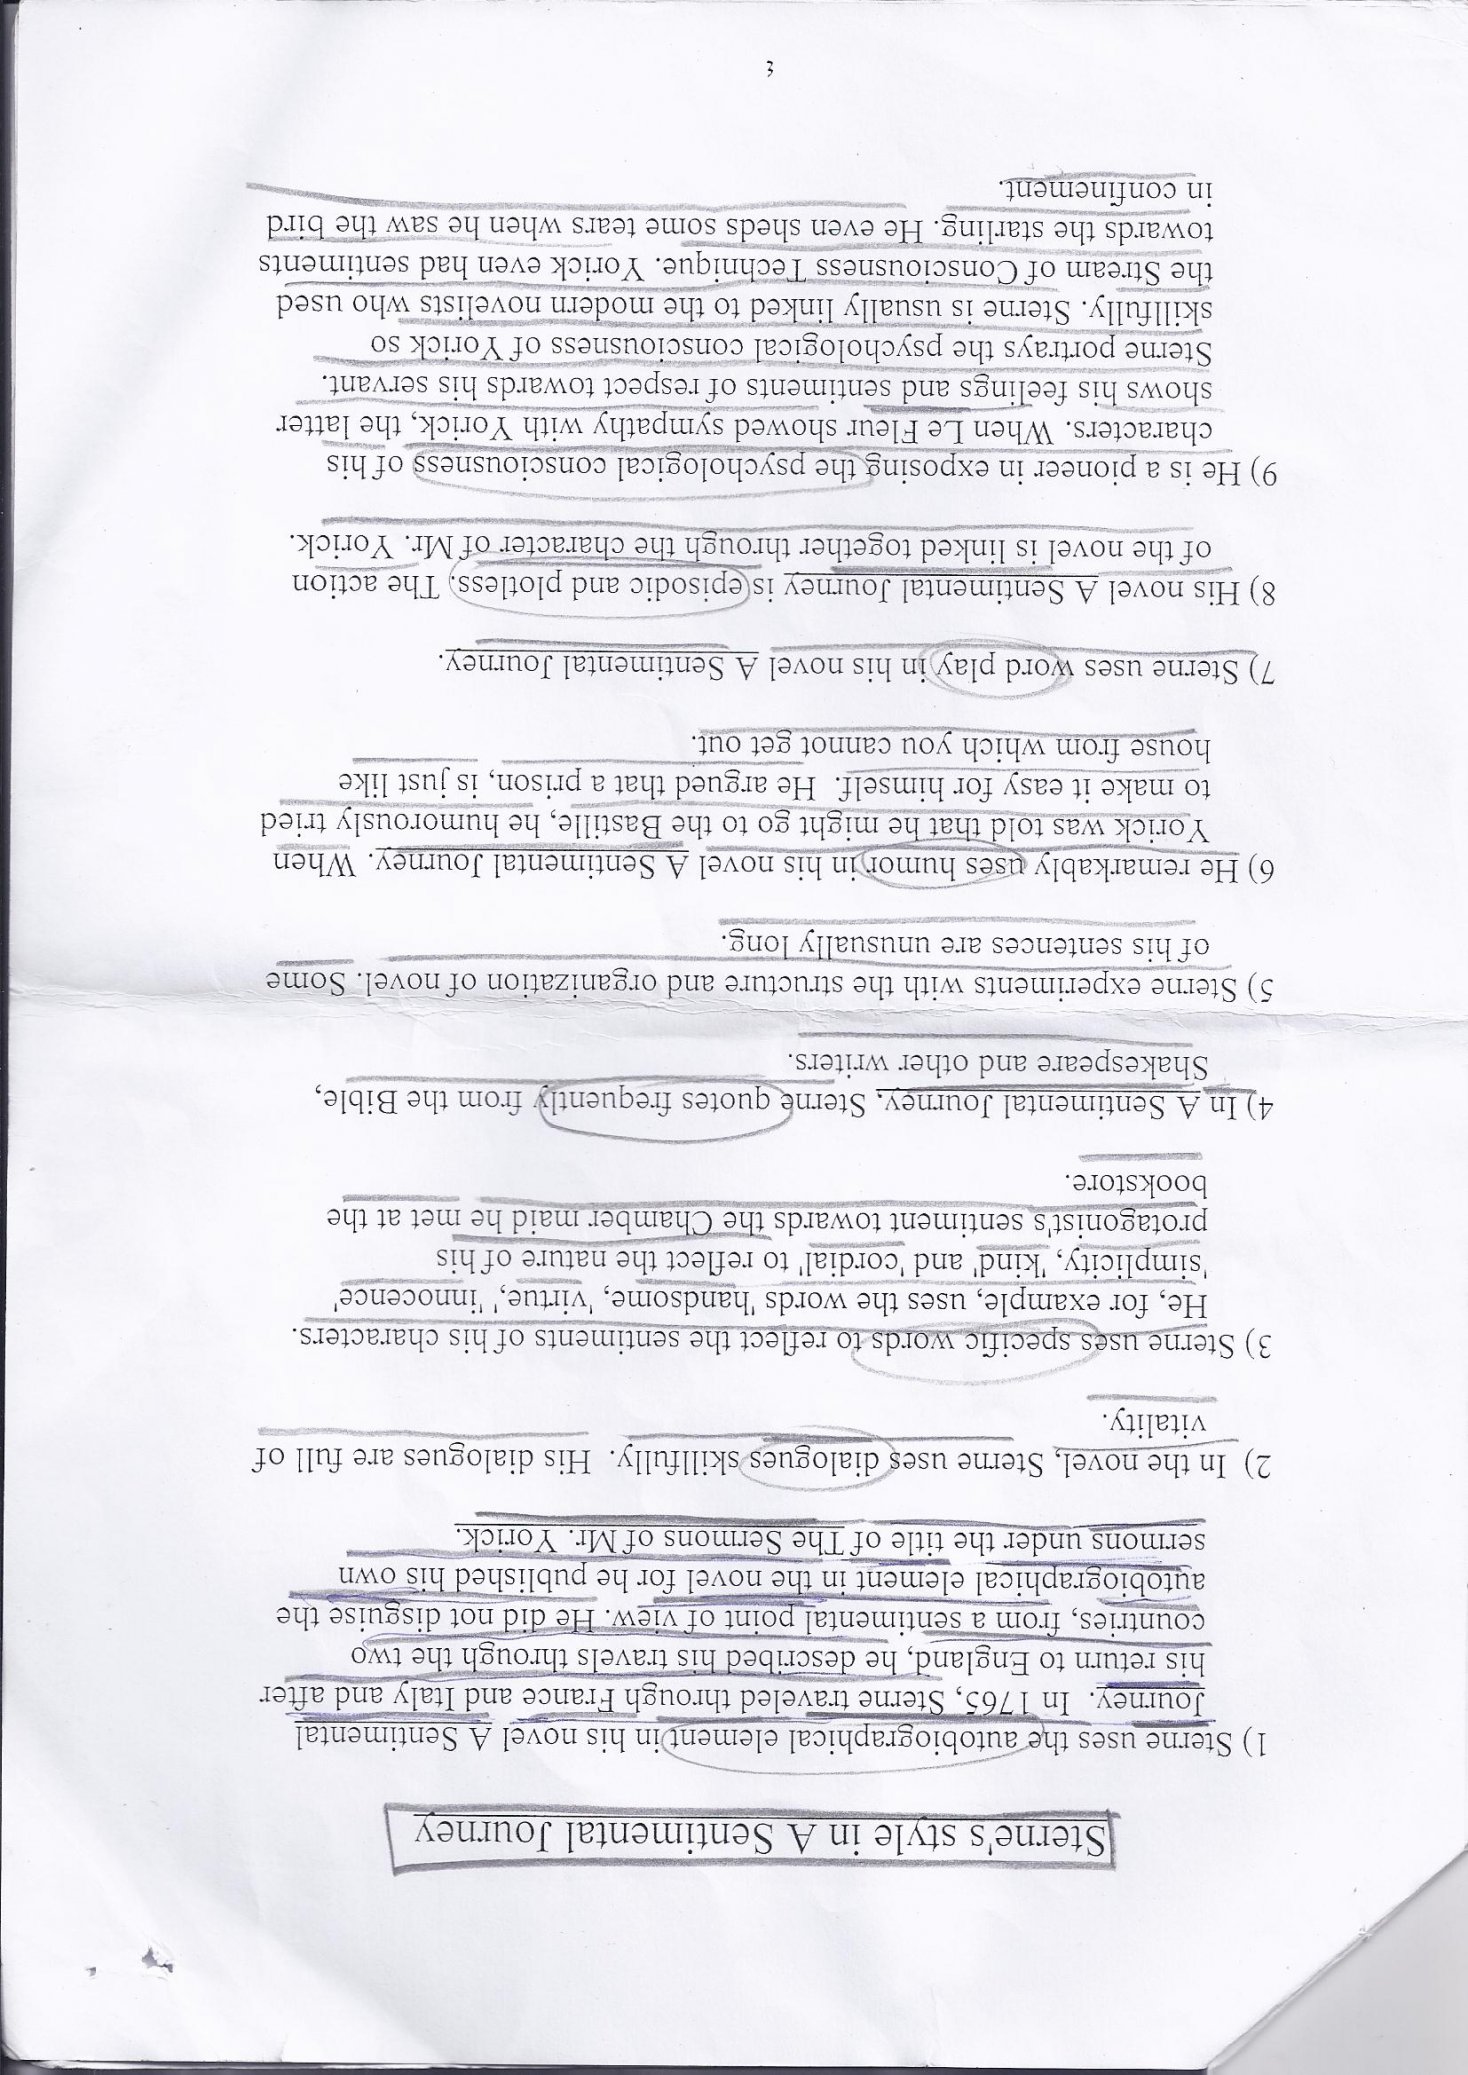 Sterne's style in A Sentimental Journey
1) Sterne uses the autobiographical element in his novel A Sentimental
Journey. In 1765, Sterne traveled through France and Italy and after
his return to England, he described his travels through the two
countries, from a sentimental point of view. He did not disguise the
autobiographical element in the novel for he published his own
sermons under the title of The Sermons of Mr. Yorick.
2) In the novel, Sterne uses dialogues skillfully. His dialogues are full of
vitality.
3) Sterne uses specific words to reflect the sentiments of his characters.
He, for example, uses the words 'handsome, 'virtue,' 'innocence'
'simplicity, 'kind' and 'cordial' to reflect the nature of his
protagonist's sentiment towards the Chamber maid he met at the
bookstore.
4) In A Sentimental Journey, Sterne quotes frequently from the Bible,
Shakespeare and other writers.
5) Sterne experiments with the structure and organization of novel. Some
of his sentences are unusually long.
6) He remarkably uses humor in his novel A Sentimental Journey. When
Yorick was told that he might go to the Bastille, he humorously tried
to make it easy for himself. He argued that a prison, is just like
house from which you cannot get out.
7) Sterne uses word play in his novel A Sentimental Journey.
8) His novel A Sentimental Journey is episodic and plotless. The action
of the novel is linked together through the character of Mr. Yorick.
9) He is a pioneer in exposing the psychological consciousness of his
characters. When Le Fleur showed sympathy with Yorick, the latter
shows his feelings and sentiments of respect towards his servant.
Sterne portrays the psychological consciousness of Yorick so
skillfully. Sterne is usually linked to the modern novelists who used
the Stream of Consciousness Technique. Yorick even had sentiments
towards the starling. He even sheds some tears when he saw the bird
in confinement.
3